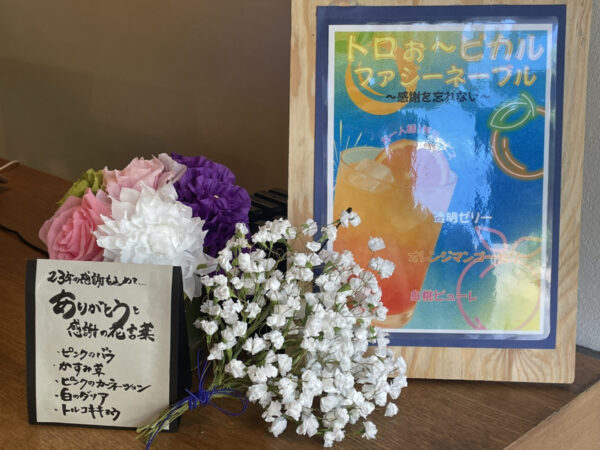 トロぉ〜ピカル
ファジーネーブル
〜感謝を忘れない〜
透明ゼリー
白桃ピューレ
23年の感謝もこめて…
ありがとうと
感謝の花言葉
・ピンクのバラ
・かすみ草
・ピンクのカーネーション
・白のダリア
・トルコキキョウ